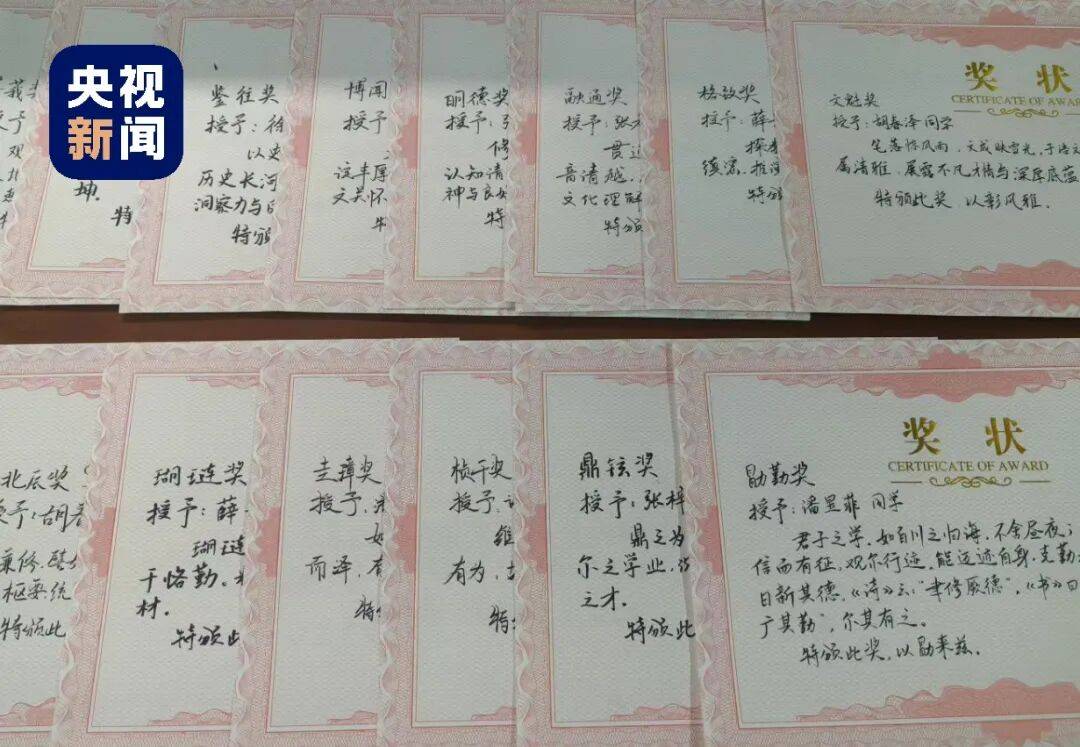 央视
新闻
坤.
特
鉴往奖
授予:徐
以史
历史长河
洞察力与
特颁
博闻
授予
谊丰厚
文关怀
明德奖
授予:
修
认知清
神与良
特
融通奖
授予:张
贯
音清越
文化理解
特颁
格致奖
授予:薛
探
缜密.推
特颁
奖状
CERTIFICATE OF AWARD
文魁奖
授予:胡春泽同学
笔落惊风雨,文成映雪光,于语文
属清雅,屡露不凡才情与深厚底蕴
特颁此奖,以彰风雅.
北辰奖
授予:胡春
兼修
枢要统
特颁此
瑚琏奖
授予:薛
瑚琏
干恪勤.
材.
特颁此
圭璋奖
授予.
如
而泽,有
特
桢干奖
授予
维
有为,
特
鼎铉奖
授予:张梓
鼎之为
尔之学业,
之才.
特颁此
奖状
CERTIFICATE OF AWARD
勖勤奖
授予:潘昱菲同学
君子之学,如百川之归海,不舍昼夜;
信而有征,观尔行迹,能迈迹自身,克勤
日新其德,《诗》云:"聿修厥德",《书》曰
广其勤",尔其有之.
特颁此奖,以勖来兹.